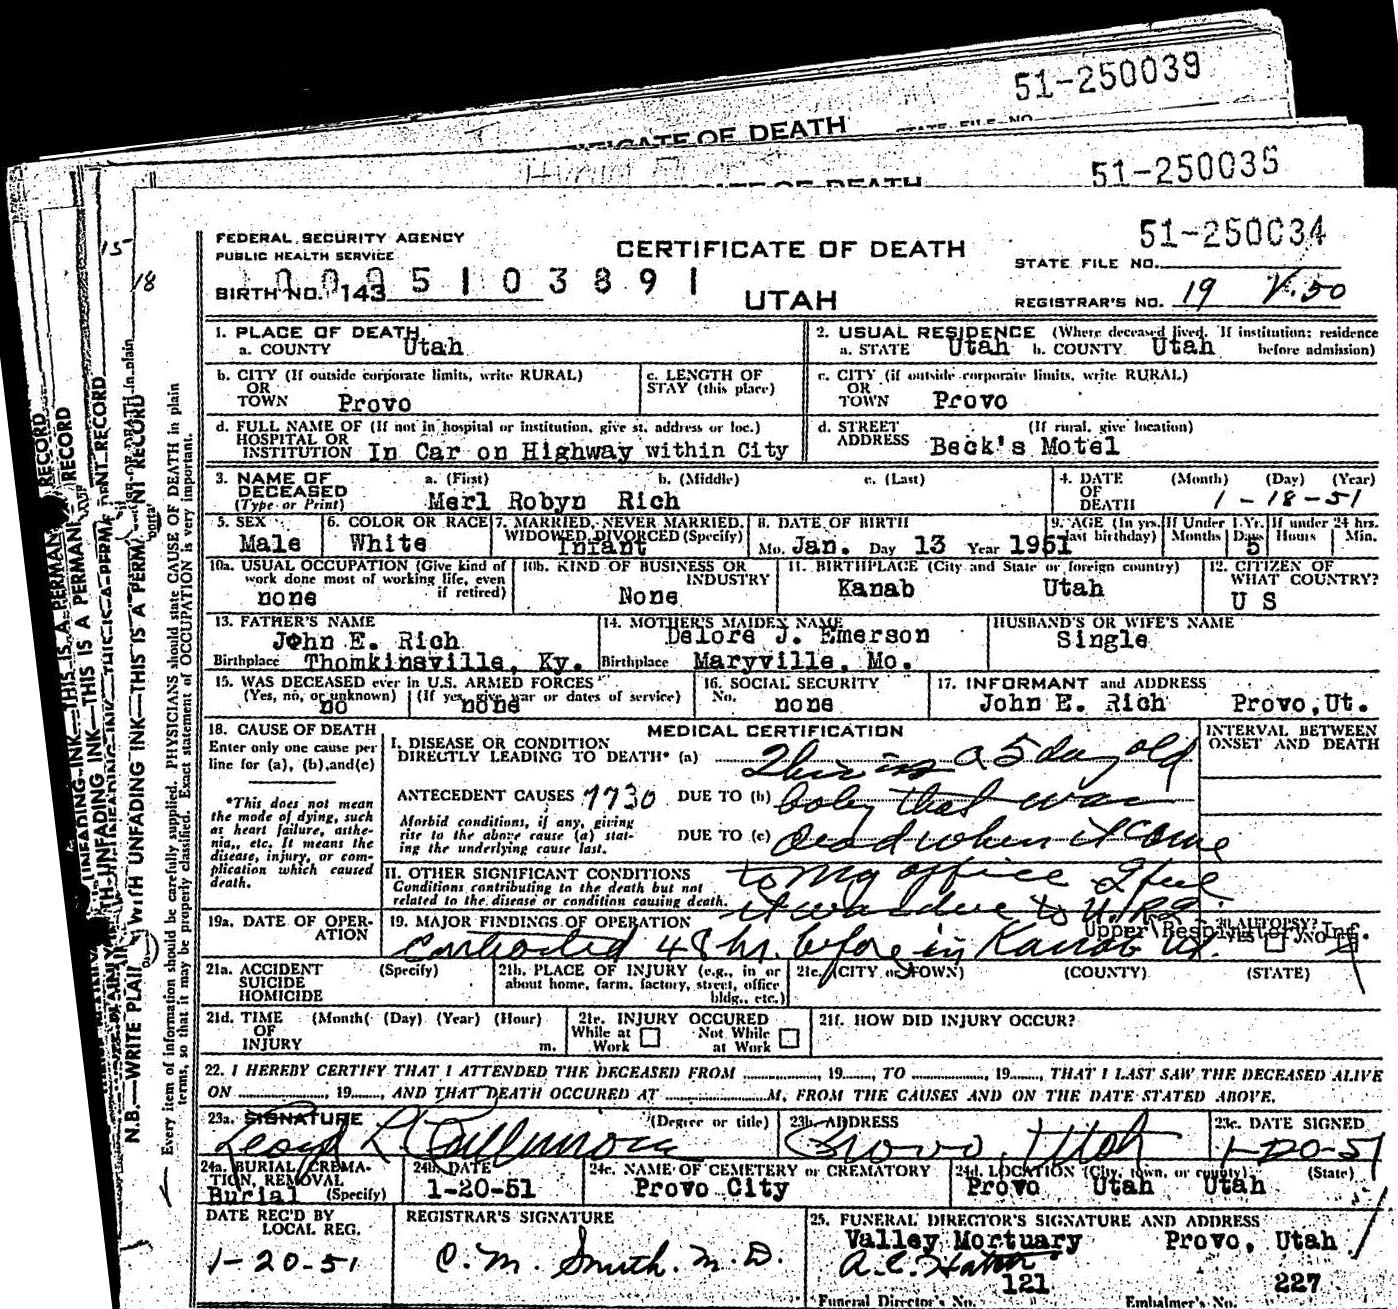 51-250039
CERTIFICATE OF DEATH
STATE FILE NO.
51-250035
51-250034
FEDERAL SECURITY AGENCY
PUBLIC HEALTH SERVICE
CERTIFICATE OF DEATH
STATE FILE NO.
BIRTH NO. 143
5103891
UTAH
REGISTRAR'S NO. 19 V.50
15
18
1. PLACE OF DEATH
a. COUNTY Utah
2. USUAL RESIDENCE (Where deceased lived. If institution: residence before admission)
a. STATE Utah b. COUNTY Utah
b. CITY (If outside corporate limits, write RURAL)
OR
TOWN Provo
c. LENGTH OF
STAY (this place)
c. CITY (if outside corporate limits, write RURAL)
OR
TOWN Provo
d. FULL NAME OF (If not in hospital or institution, give st. address or loc.)
HOSPITAL OR
INSTITUTION In Car on Highway within City
d. STREET (If rural, give location)
ADDRESS Beck's Motel
3. NAME OF
DECEASED
(Type or Print)
a. (First) b. (Middle) c. (Last)
Merl Robyn Rich
4. DATE (Month) (Day) (Year)
OF
DEATH 1-18-51
5. SEX
Male
6. COLOR OR RACE
White
7. MARRIED, NEVER MARRIED,
WIDOWED, DIVORCED (Specify)
Infant
8. DATE OF BIRTH
Mo. Jan. Day 13 Year 1951
9. AGE (In yrs. last birthday)
If Under 1 Yr.
Months Days
5
If under 24 hrs.
Hours Min.
10a. USUAL OCCUPATION (Give kind of
work done most of working life, even
if retired)
none
10b. KIND OF BUSINESS OR
INDUSTRY
None
11. BIRTHPLACE (City and State or foreign country)
Kanab Utah
12. CITIZEN OF
WHAT COUNTRY?
U S
13. FATHER'S NAME
John E. Rich
Birthplace Thomkinsville, Ky.
14. MOTHER'S MAIDEN NAME
Delore J. Emerson
Birthplace Maryville, Mo.
HUSBAND'S OR WIFE'S NAME
Single
15. WAS DECEASED ever in U.S. ARMED FORCES
(Yes, no, or unknown) (If yes, give war or dates of service)
no none
16. SOCIAL SECURITY
No. none
17. INFORMANT and ADDRESS
John E. Rich Provo, Ut.
18. CAUSE OF DEATH
Enter only one cause per
line for (a), (b), and (c)
*This does not mean
the mode of dying, such
as heart failure, asthe-
nia, etc. It means the
disease, injury, or com-
plication which caused
death.
MEDICAL CERTIFICATION
INTERVAL BETWEEN
ONSET AND DEATH
I. DISEASE OR CONDITION
DIRECTLY LEADING TO DEATH* (a) This is a 5 day old
ANTECEDENT CAUSES 7730 DUE TO (b) baby that was
Morbid conditions, if any, giving
rise to the above cause (a) stat-
ing the underlying cause last.
DUE TO (c) dead when it came
II. OTHER SIGNIFICANT CONDITIONS
Conditions contributing to the death but not
related to the disease or condition causing death.
to my office I feel
it was due to U.R.I.
Upper Respiratory Inf.
19a. DATE OF OPER-
ATION
19. MAJOR FINDINGS OF OPERATION
contracted 48 hr. before in Kanab Ut.
20. AUTOPSY?
Yes No
21a. ACCIDENT (Specify)
SUICIDE
HOMICIDE
21b. PLACE OF INJURY (e.g., in or
about home, farm, factory, street, office
bldg., etc.)
21c. (CITY or TOWN) (COUNTY) (STATE)
21d. TIME (Month) (Day) (Year) (Hour)
OF
INJURY m.
21e. INJURY OCCURED
While at Work Not While at Work
21f. HOW DID INJURY OCCUR?
22. I HEREBY CERTIFY THAT I ATTENDED THE DECEASED FROM , 19 , TO , 19 , THAT I LAST SAW THE DECEASED ALIVE
ON , 19 , AND THAT DEATH OCCURED AT M, FROM THE CAUSES AND ON THE DATE STATED ABOVE.
23a. SIGNATURE (Degree or title)
Lloyd L. Cullimore
23b. ADDRESS
Provo, Utah
23c. DATE SIGNED
1-20-51
24a. BURIAL, CREMA-
TION, REMOVAL
(Specify)
Burial
24b. DATE
1-20-51
24c. NAME OF CEMETERY or CREMATORY
Provo City
24d. LOCATION (City, town, or county) (State)
Provo Utah Utah
DATE REC'D BY
LOCAL REG.
1-20-51
REGISTRAR'S SIGNATURE
C. M. Smith. M. D.
25. FUNERAL DIRECTOR'S SIGNATURE AND ADDRESS
Valley Mortuary Provo, Utah
A. C. Hatch
121 227
Funeral Director's No. Embalmer's No.
N.B.—WRITE PLAINLY WITH UNFADING INK—THIS IS A PERMANENT RECORD
Every item of information should be carefully supplied. PHYSICIANS should state CAUSE OF DEATH in plain
terms, so that it may be properly classified. Exact statement of OCCUPATION is very important.